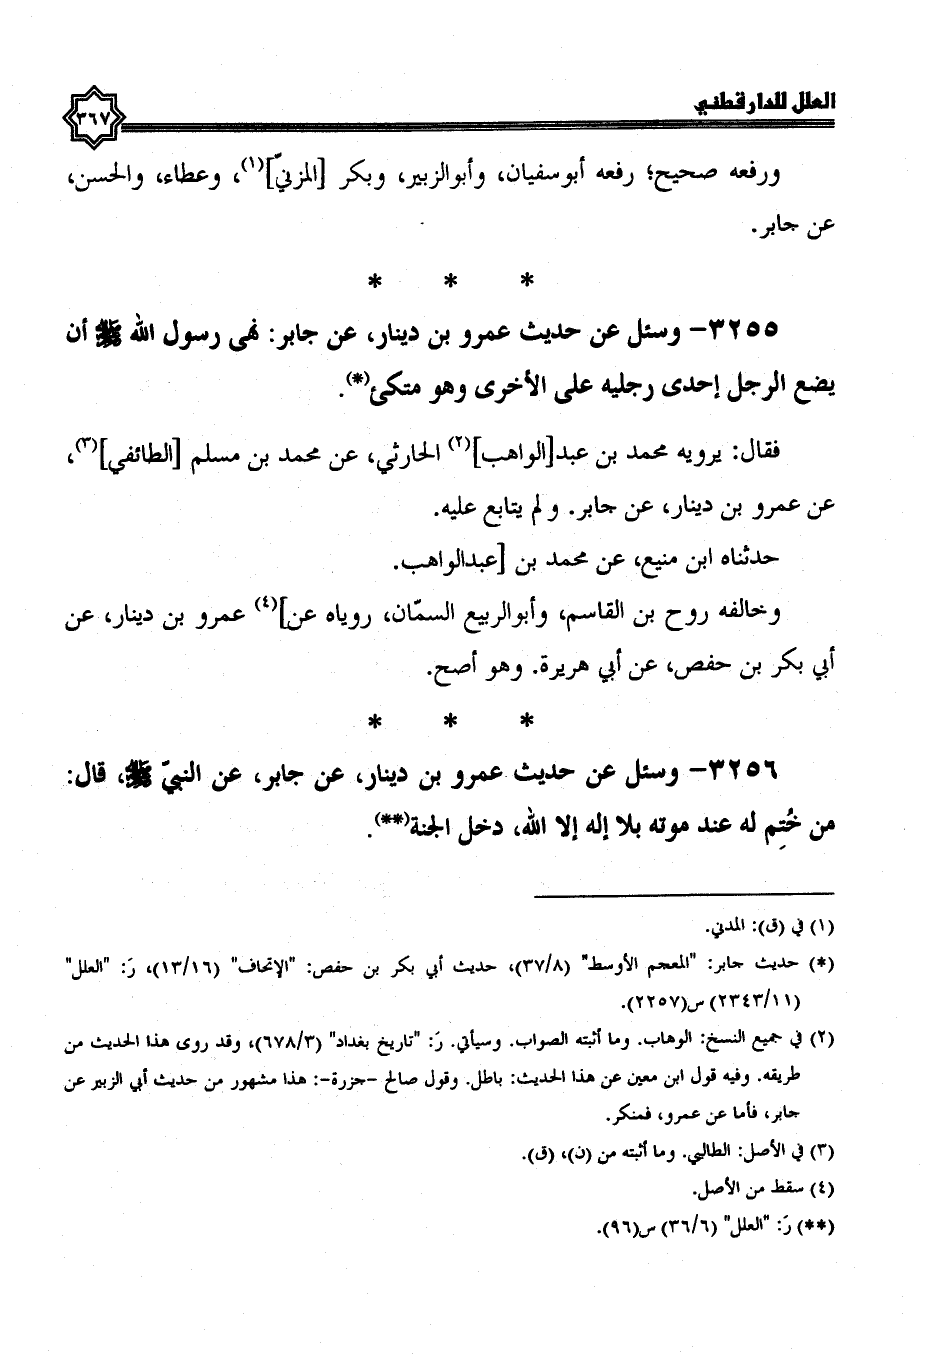 العلل للدارقطني
٣٦٧
ورفعه صحيح؛ رفعه أبوسفيان، وأبوالزبير، وبكر [المزنيّ](١)، وعطاء، والحسن،
عن جابر.
* * *
٣٢٥٥- وسئل عن حديث عمرو بن دينار، عن جابر: نهى رسول الله ﷺ أن
يضع الرجل إحدى رجليه على الأخرى وهو متكئ(*).
فقال: يرويه محمد بن عبد[الواهب](٢) الحارثي، عن محمد بن مسلم [الطائفي](٣)،
عن عمرو بن دينار، عن جابر. ولم يتابع عليه.
حدثناه ابن منيع، عن محمد بن [عبدالواهب.
وخالفه روح بن القاسم، وأبوالربيع السمّان، روياه عن](٤) عمرو بن دينار، عن
أبي بكر بن حفص، عن أبي هريرة. وهو أصح.
* * *
٣٢٥٦- وسئل عن حديث عمرو بن دينار، عن جابر، عن النبيّ ﷺ، قال:
من خُتِم له عند موته بلا إله إلا الله، دخل الجنة(**).
(١) في (ق): المدني.
(*) حديث جابر: "المعجم الأوسط" (٣٧/٨)، حديث أبي بكر بن حفص: "الإتحاف" (١٣/١٦)، رَ: "العلل"
(٢٣٤٣/١١) س(٢٢٥٧).
(٢) في جميع النسخ: الوهاب. وما أثبته الصواب. وسيأتي. رَ: "تاريخ بغداد" (٦٧٨/٣)، وقد روى هذا الحديث من
طريقه. وفيه قول ابن معين عن هذا الحديث: باطل. وقول صالح -جزرة-: هذا مشهور من حديث أبي الزبير عن
جابر، فأما عن عمرو، فمنكر.
(٣) في الأصل: الطالبي. وما أثبته من (ن)، (ق).
(٤) سقط من الأصل.
(**) رَ: "العلل" (٣٦/٦) س(٩٦).